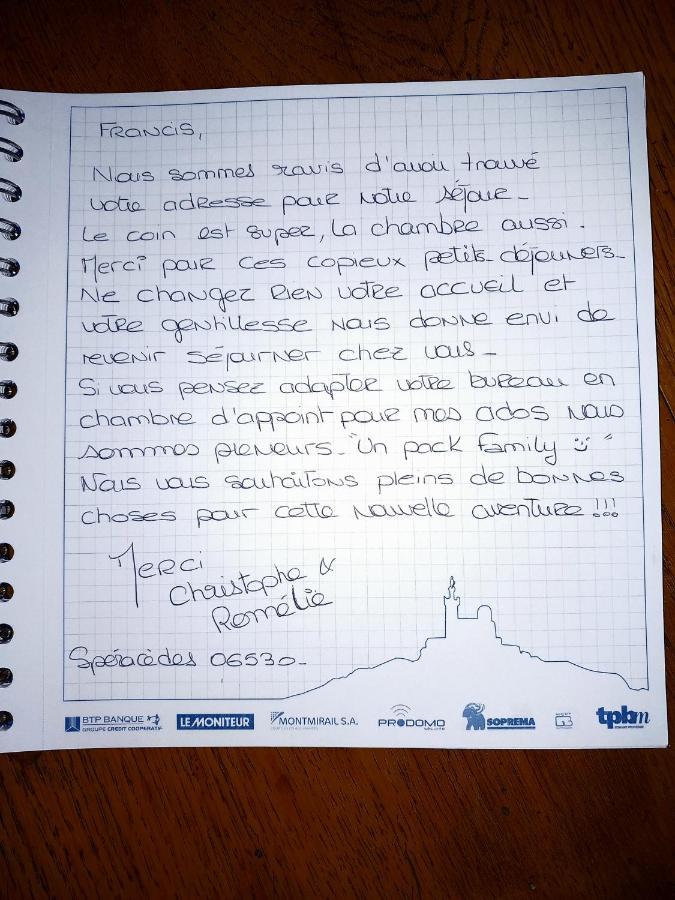 Francis,
Nous sommes ravis d'avoir trouvé
votre adresse pour notre séjour_
Le coin est super, la chambre aussi.
Merci pour ces copieux petits-déjeuners_
Ne changez rien votre accueil et
votre gentillesse nous donne envi de
revenir séjourner chez vous_
Si vous pensez adapter votre bureau en
chambre d'appoint pour mes ados nous
sommes preneurs_ "Un pack family "
Nous vous souhaitons pleins de bonnes
choses pour cette nouvelle aventure !!!
Merci
Christophe &
Romélie
Spéracèdes 06530_
BTP BANQUE
GROUPE CREDIT COOPERATIF
LE MONITEUR
MONTMIRAIL S.A.
PRODOMO
SOPREMA
tpbm